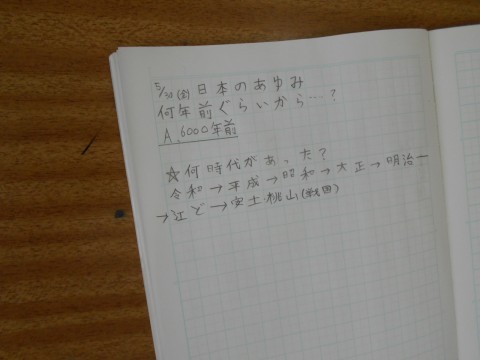 5/30(金)日本のあゆみ
何年前ぐらいから…?
A.6000年前
☆何時代があった?
令和→平成→昭和→大正→明治→
→江ど→安土・桃山(戦国)